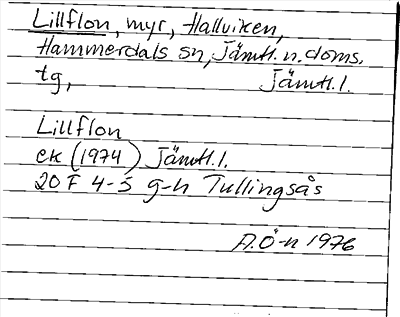 Lillflon, myr, Hallviken,
Hammerdals sn, Jämtl. n. doms.
tg, Jämtl. l.
Lillflon
ek (1974) Jämtl. l.
20 F 4-5 g-h Tullingsås
A. Ö-n 1976